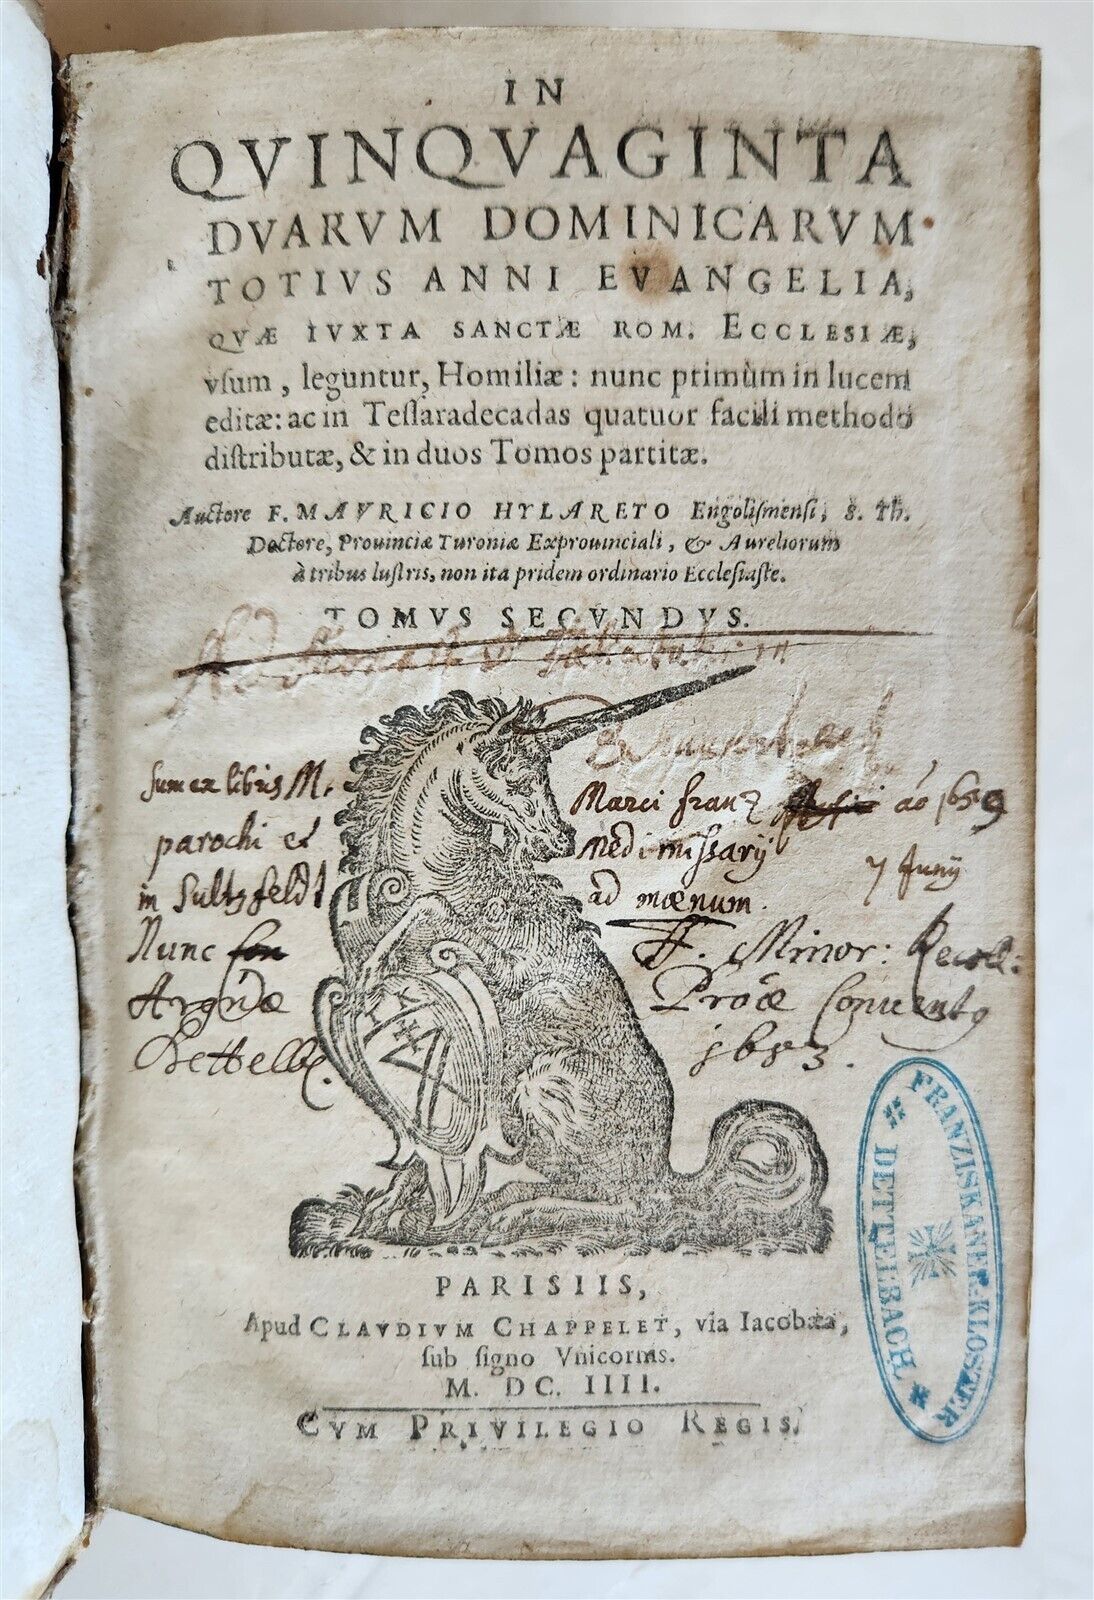 IN
QVINQVAGINTA
DVARVM DOMINICARVM
TOTIVS ANNI EVANGELIA,
QVÆ IVXTA SANCTÆ ROM. ECCLESIÆ,
vſum, leguntur, Homiliæ: nunc primùm in lucem
editæ: ac in Teſſaradecadas quatuor facili methodo
diſtributæ, & in duos Tomos partitæ.
Auctore F. MAVRICIO HYLARETO Engoliſmenſi, S. Th.
Doctore, Prouinciæ Turoniæ Exprouinciali, & Aureliorum
à tribus luſtris, non ita pridem ordinario Eccleſiaſte.
TOMVS SECVNDVS.
Ad
sum ex libris M. Marci franz aō 1659
parochi et Medimissarÿ 7 Junÿ
in Sultzfeldt ad mœnum.
Nunc FF. Minor: Recoll:
Arg̃næ Proæ Conuent9
Dettelb. 1683.
FRANZISKANER-KLOSTER
DETTELBACH
PARISIIS,
Apud CLAVDIVM CHAPPELET, via Iacobæa,
ſub ſigno Vnicornis.
M. DC. IIII.
CVM PRIVILEGIO REGIS.